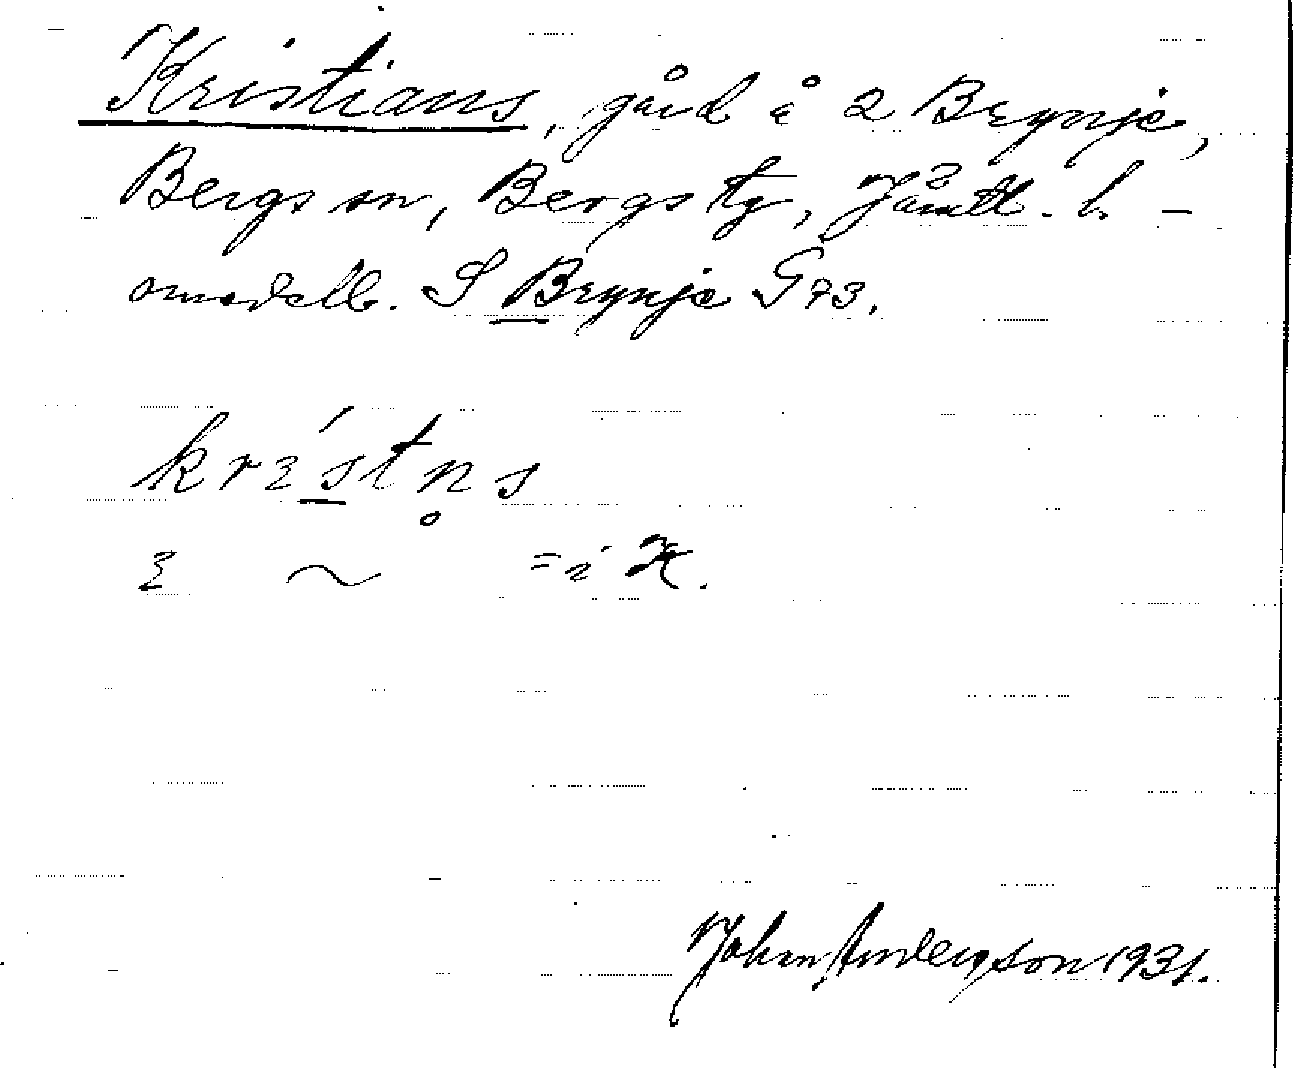 Kristians, gård å 2 Brynje,
Bergs sn, Bergs tg, Jämtl. l. -
omådelb. S Brynje G 73.
krɛ́stn̥s
ɛ ~ = i K.
Johan Anderson 1931.